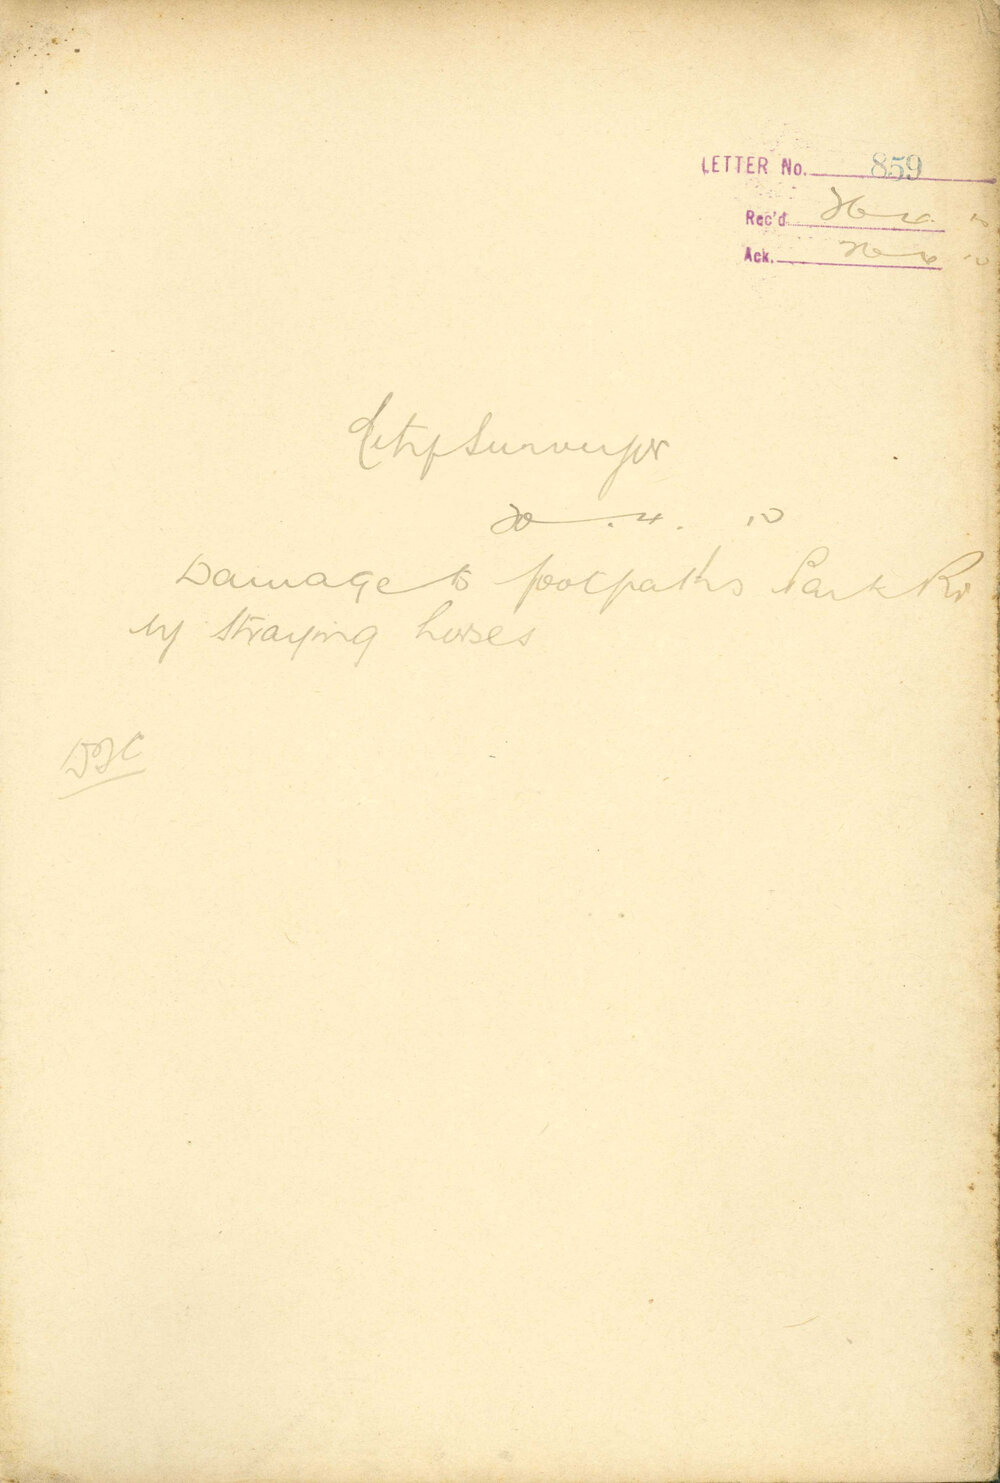 LETTER No. 859
Rec'd
Ack.
City Surveyor
20.4.10
Damage to footpaths Park Rd
by straying horses